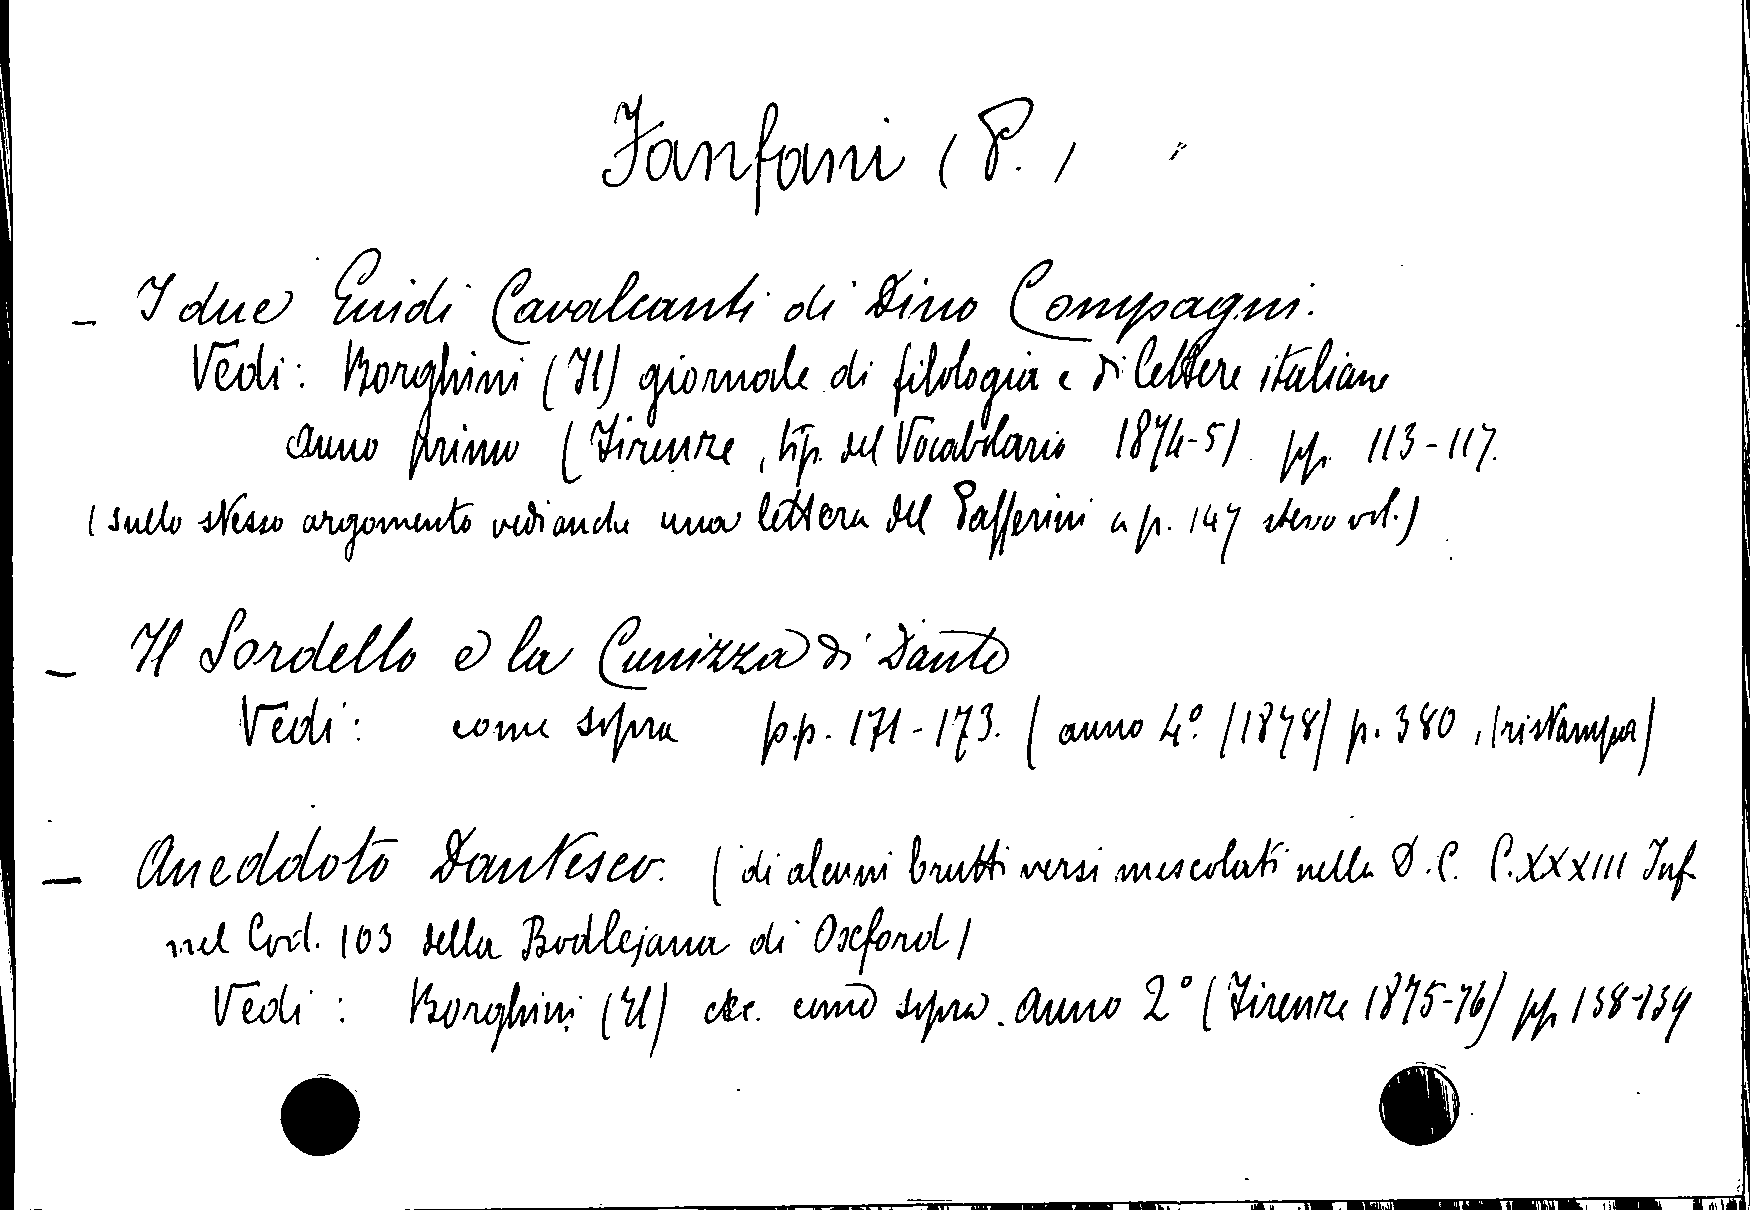 Fanfani (P.)
– I due Guidi Cavalcanti di Dino Compagni.
Vedi: Borghini (Il) giornale di filologia e di lettere italiane
anno primo (Firenze, tip. del Vocabolario 1874-5) pp. 113-117.
(sullo stesso argomento vedi anche una lettera del Passerini a p. 147 stesso vol.)
– Il Sordello e la Cunizza di Dante
Vedi: come sopra pp. 171-173. (anno 4.º (1878) p. 380, (ristampa)
– Aneddoto Dantesco. (di alcuni brutti versi mescolati nella D.C. C.XXXIII Inf
nel Cod. 103 della Bodlejana di Oxford)
Vedi: Borghini (Il) etc. come sopra. anno 2º (Firenze 1875-76) pp 138-139